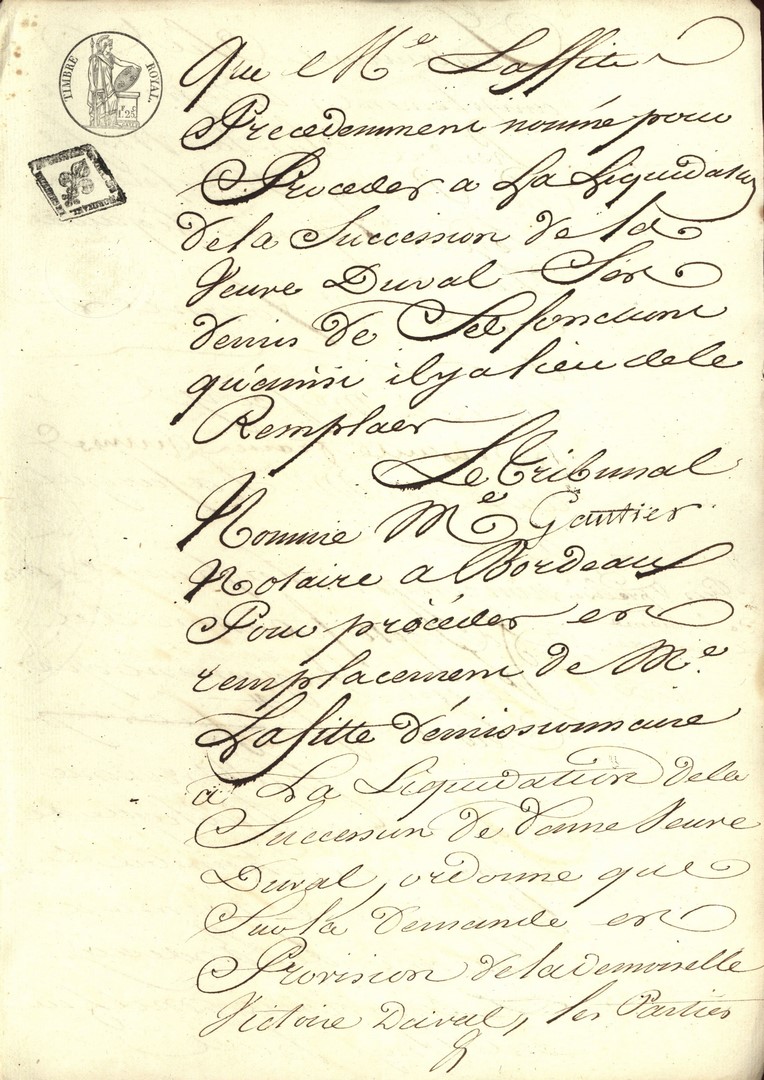 TIMBRE ROYAL.
1f. 25c.
Que Me Laffite
Precedemment nommé pour
Proceder a La Liquidation
de la Succession de la
Veuve Duval S'est
demis de Ses fonctions
qu'ainsi il y a lieu de le
Remplacer
Le Tribunal
Nomme Me Gautier
Notaire a Bordeaux
Pour procéder en
remplacement de Me
Lafitte démissionnaire
à La Liquidation de la
Succession de dame Veuve
Duval, ordonne que
Sur la demande en
Provision de la demoiselle
Victoire Duval, les Parties